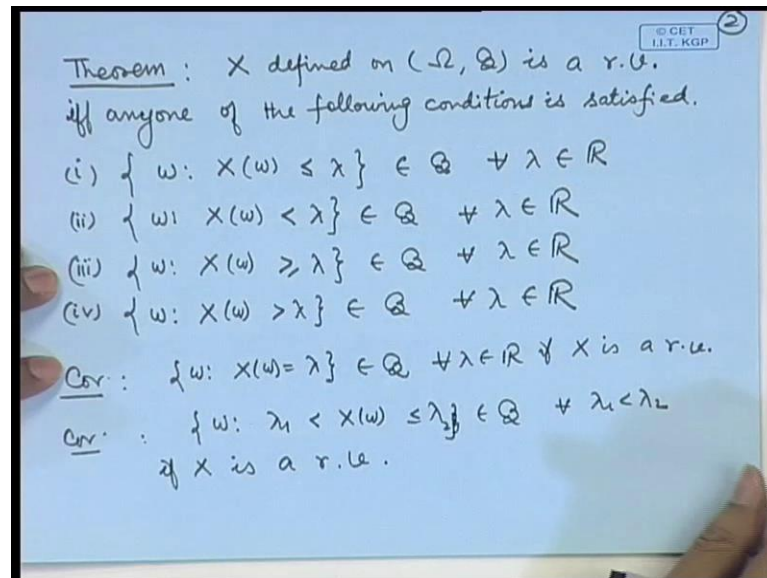 © CET
I.I.T. KGP
2
Theorem : X defined on (Ω, Q) is a r.v.
iff anyone of the following conditions is satisfied.
(i) { ω: X(ω) ≤ λ} ∈ Q ∀ λ ∈ ℝ
(ii) { ω: X(ω) < λ} ∈ Q ∀ λ ∈ ℝ
(iii) { ω: X(ω) ≥ λ} ∈ Q ∀ λ ∈ ℝ
(iv) { ω: X(ω) > λ} ∈ Q ∀ λ ∈ ℝ
Cor : { ω: X(ω) = λ} ∈ Q ∀ λ ∈ ℝ if X is a r.v.
Cor : { ω: λ₁ < X(ω) ≤ λ₂} ∈ Q ∀ λ₁ < λ₂
if X is a r.v.